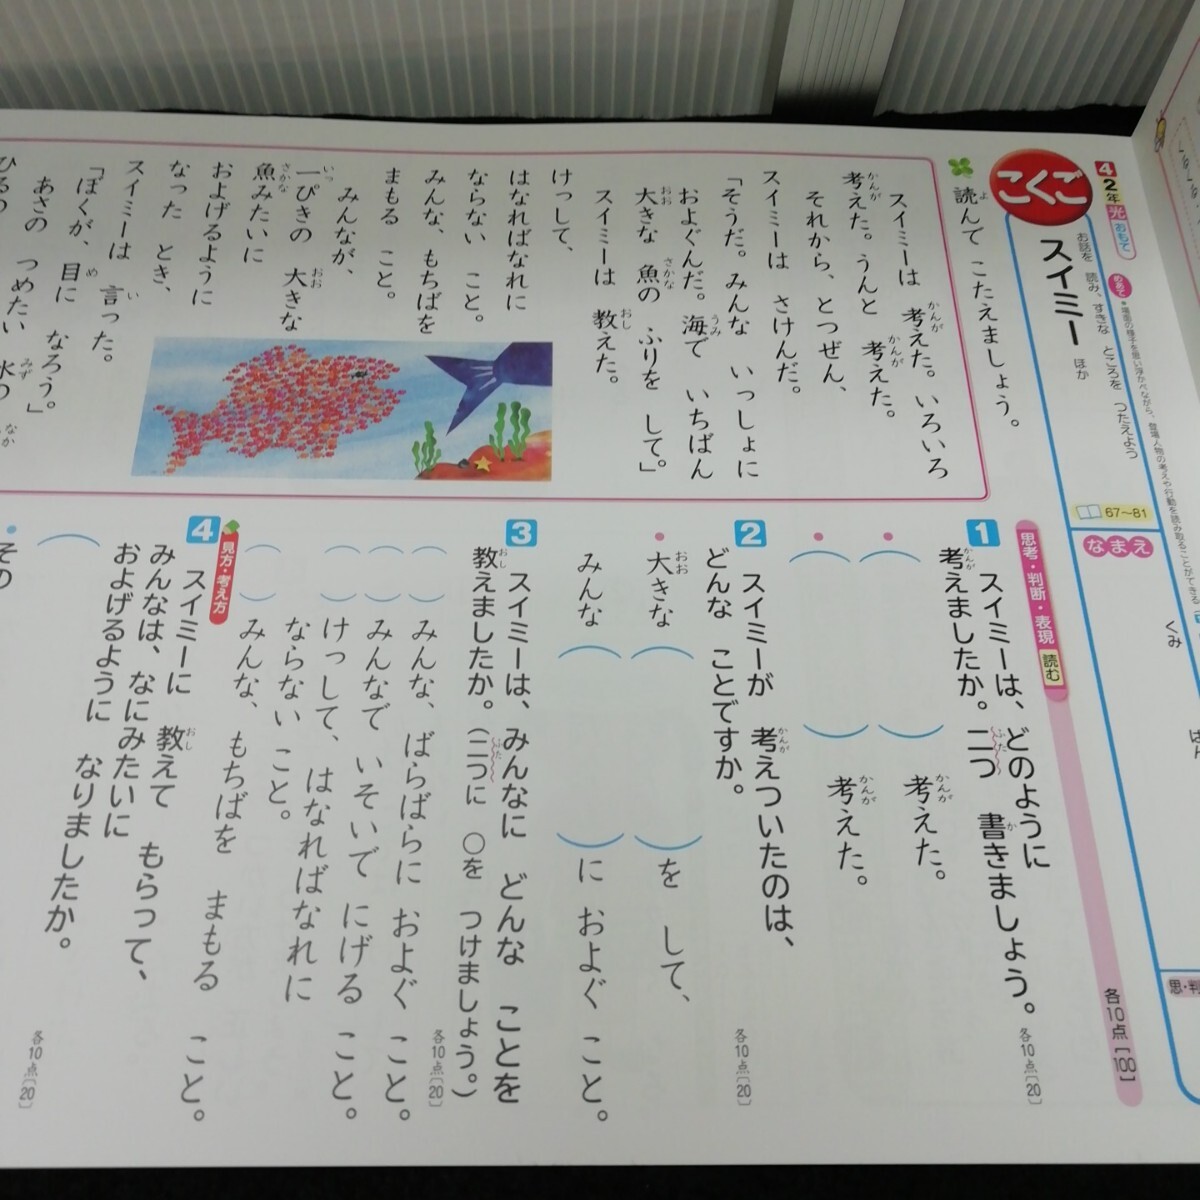 こくご
4 2年 光 おもて
お話を 読み、すきな ところを つたえよう
スイミー ほか
めあて
●場面の様子を思い浮かべながら、登場人物の考えや行動を読み取ることができる
67〜81
なまえ
くみ
読んで こたえましょう。
スイミーは 考えた。いろいろ
考えた。うんと 考えた。
それから、とつぜん、
スイミーは さけんだ。
「そうだ。みんな いっしょに
およぐんだ。海で いちばん
大きな 魚の ふりを して。」
スイミーは 教えた。
けっして、
はなればなれに
ならない こと。
みんな、もちばを
まもる こと。
みんなが、
一ぴきの 大きな
魚みたいに
およげるように
なった とき、
スイミーは 言った。
「ぼくが、目に なろう。」
あさの つめたい 水の なか
ひるの
思考・判断・表現 読む
各10点[100]
1 スイミーは、どのように
考えましたか。二つ 書きましょう。
各10点[20]
( ) 考えた。
( ) 考えた。
2 スイミーが 考えついたのは、
どんな ことですか。
各10点[20]
大きな ( )を して、
みんな ( )に およぐ こと。
3 スイミーは、みんなに どんな ことを
教えましたか。(二つに ○を つけましょう。)
各10点[20]
( ) みんな、ばらばらに およぐ こと。
( ) みんなで いそいで にげる こと。
( ) けっして、はなればなれに
ならない こと。
( ) みんな、もちばを まもる こと。
見方・考え方
4 スイミーに 教えて もらって、
みんなは、なにみたいに
およげるように なりましたか。
各10点[20]
(
その
思・判